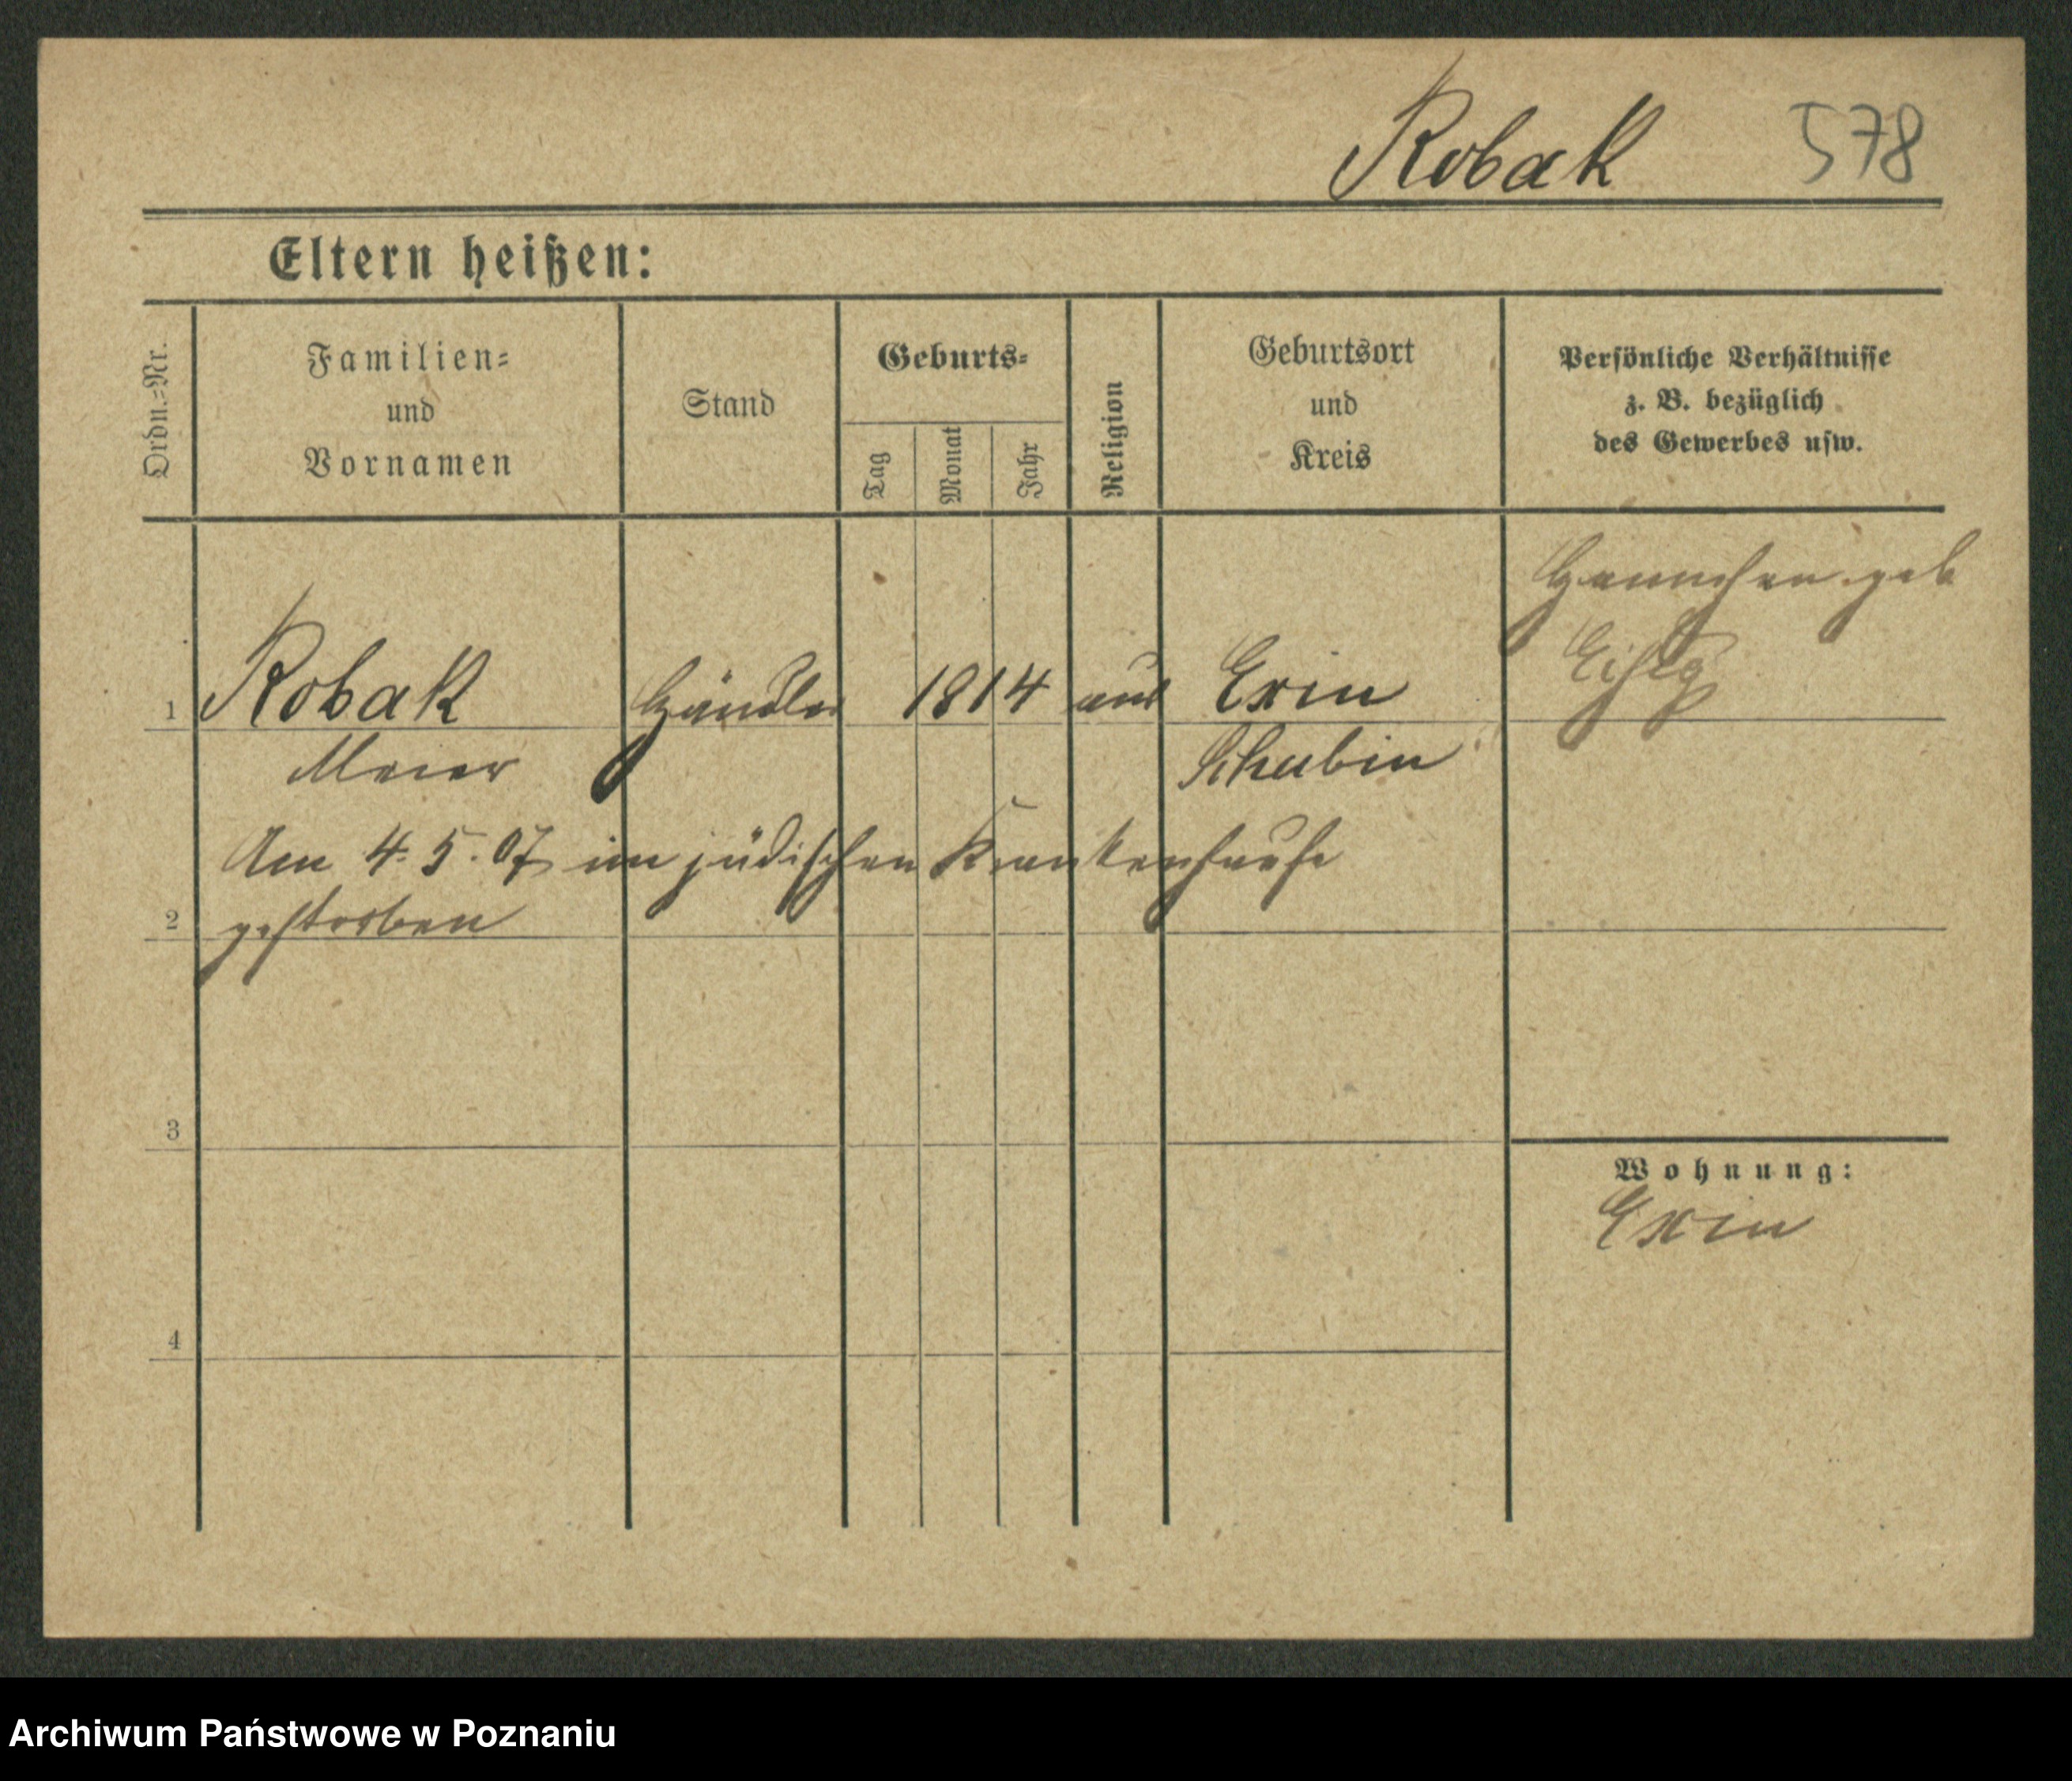 Robak 578
Eltern heißen:
Ordn.-Nr.
Familien-
und
Vornamen
Stand
Geburts-
Tag
Monat
Jahr
Religion
Geburtsort
und
Kreis
Persönliche Verhältnisse
z. B. bezüglich
des Gewerbes usw.
Hannchen geb
1 Robak Händler 1814 aus Exin
Meier Schubin
Am 4.5.07 im jüdischen Krankenhause
2 gestorben
3
Wohnung:
Exin
4
Archiwum Państwowe w Poznaniu